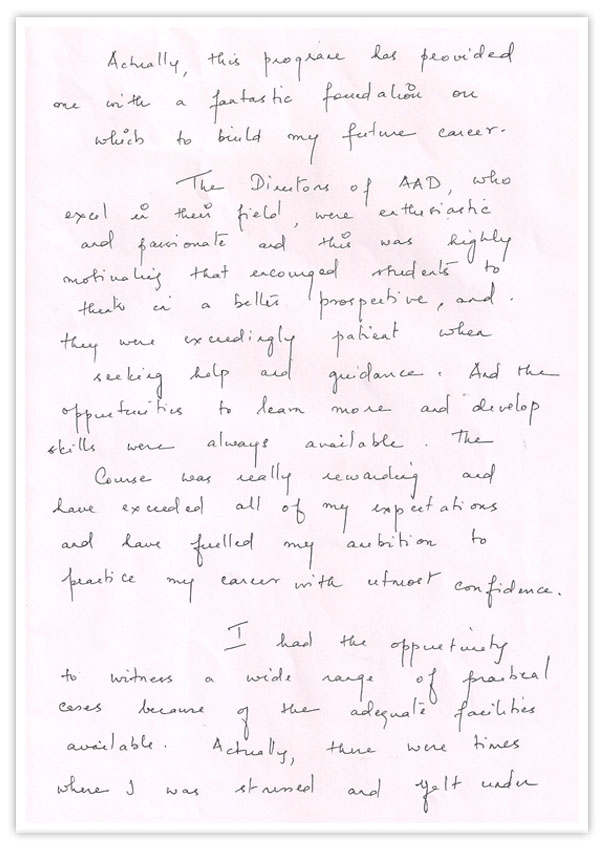 Actually, this program has provided
me with a fantastic foundation on
which to build my future career.
The Directors of AAD, who
excel in their field, were enthusiastic
and passionate and this was highly
motivating that encouraged students to
think in a better prospective, and.
they were exceedingly patient when
seeking help and guidance. And the
opportunities to learn more and develop
skills were always available. The
Course was really rewarding and
have exceeded all of my expectations
and have fuelled my ambition to
practice my career with utmost confidence.
I had the opportunity
to witness a wide range of practical
cases because of the adequate facilities
available. Actually, there were times
where I was stressed and felt under